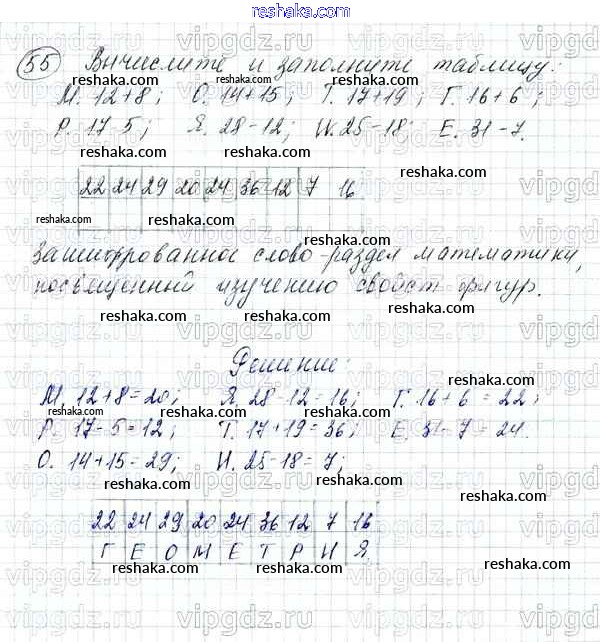 reshaka.com
55 Вычислите и заполните таблицу:
М. 12+8; О. 14+15; Т. 17+19; Г. 16+6;
Р. 17-5; Я. 28-12; И. 25-18; Е. 31-7.
22 24 29 20 24 36 12 7 16
Зашифрованное слово-раздел математики,
посвященный изучению свойст фигур.
Решение:
М. 12+8=20; Я. 28-12=16; Г. 16+6=22;
Р. 17-5=12; Т. 17+19=36; Е. 31-7=24.
О. 14+15=29; И. 25-18=7;
22 24 29 20 24 36 12 7 16
Г Е О М Е Т Р И Я
vipgdz.ru